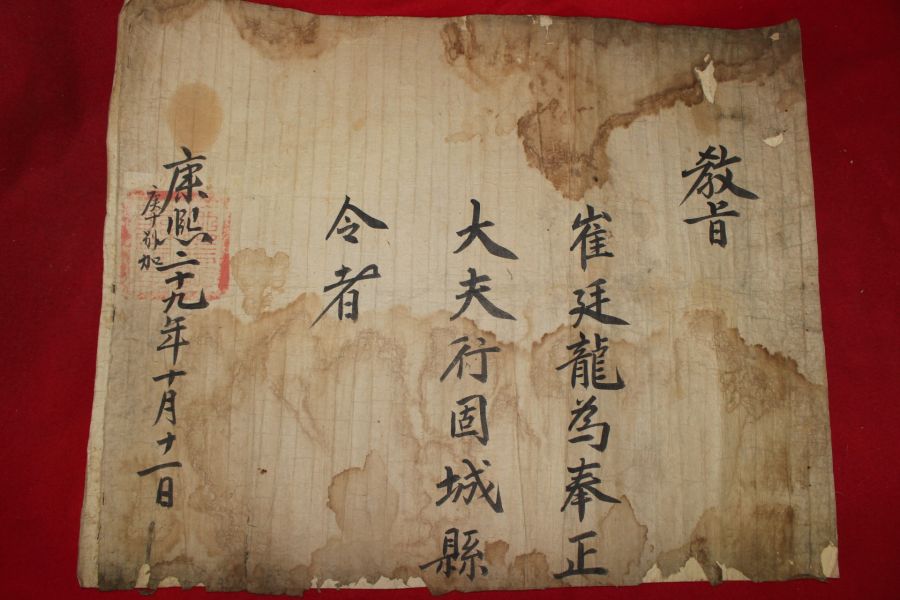 教旨
崔廷龍為奉正
大夫行固城縣
令者
康熙二十九年十月十一日
庚午別加